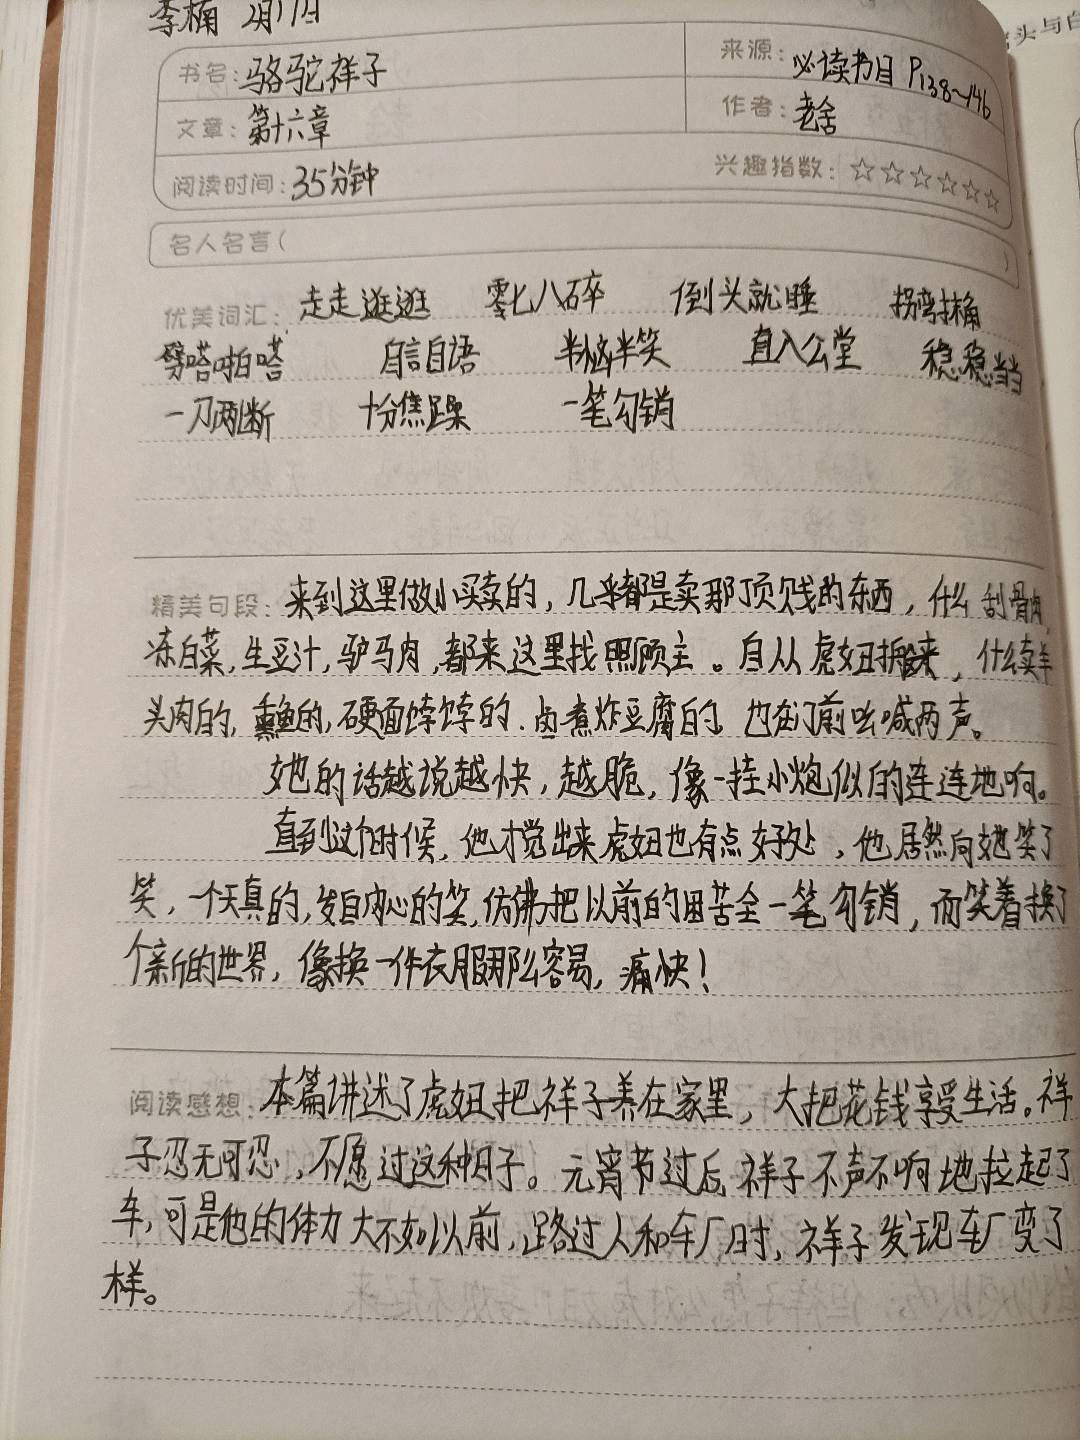 李楠 2月17日
头与白
书名:骆驼祥子 来源:必读书目 P138~146
文章:第十六章 作者:老舍
阅读时间:35分钟 兴趣指数:☆☆☆☆☆☆
名人名言( )
优美词汇:走走逛逛 零七八碎 倒头就睡 拐弯抹角
劈嗒啪嗒 自言自语 半恼半笑 直入公堂 稳稳当当
一刀两断 十分焦躁 一笔勾销
精美句段:来到这里做小买卖的,几乎都是卖那顶贱的东西,什么刮骨肉,
冻白菜,生豆汁,驴马肉,都来这里找照顾主。自从虎妞搬来,什么卖羊
头肉的,熏鱼的,硬面饽饽的.卤煮炸豆腐的,也在门前吆喊两声。
她的话越说越快,越脆,像一挂小炮似的连连地响。
直到这个时候,他才觉出来虎妞也有点好处,他居然向她笑了
笑,一个天真的,发自内心的笑,仿佛把以前的困苦全一笔勾销,而笑着换了
个新的世界,像换一件衣服那么容易,痛快!
阅读感想:本篇讲述了虎妞把祥子养在家里,大把花钱享受生活。祥
子忍无可忍,不愿过这种日子。元宵节过后,祥子不声不响地拉起了
车,可是他的体力大不如以前,路过人和车厂时,祥子发现车厂变了
样。